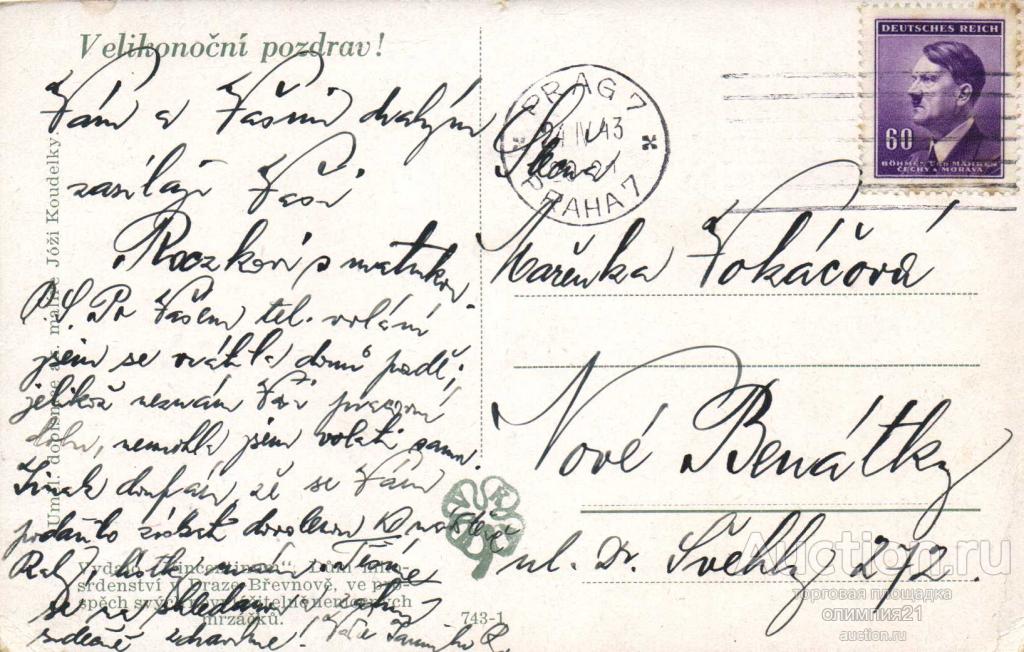 Velikonoční pozdrav!
Vám a Vašim drahým
zasílají Vaši
Roczkovi s matinkou
P.S. Po Vašem tel. volání
jsem se vrátila domů později,
jelikož neznám Vaši pracovní
dobu, nemohla jsem volati sama.
Jinak doufám, že se Vám
podařilo získat dovolenou
se na shledanou
srdečně zdravíme! Vaše
Uměl. dopisnice ak. malíře Jóži Koudelky.
Vydalo „Vincentinum“,
srdenství v Praze-Břevnově, ve pro-
spěch svých nevyléčitelně nemocných
mrzáčků.
743-1
PRAG 7
24 IV 43
PRAHA 7
DEUTSCHES REICH
60
BÖHMEN UND MÄHREN
ČECHY A MORAVA
Slečna
Mařenka Fokáčová
Nové Benátky
ul. Dr. Švehly 272.
Auction.ru
торговая площадка
олимпия21
auction.ru